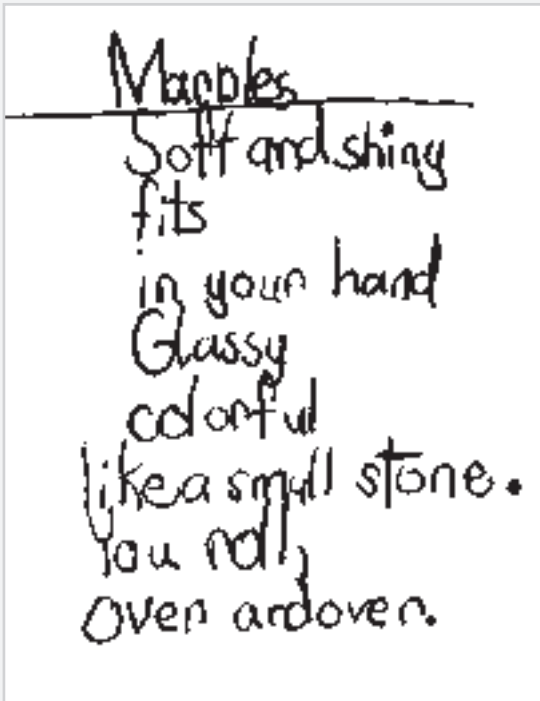 Marbles
Soft and shiny
fits
in your hand
Glassy
colorful
like a small stone.
You roll
over and over.